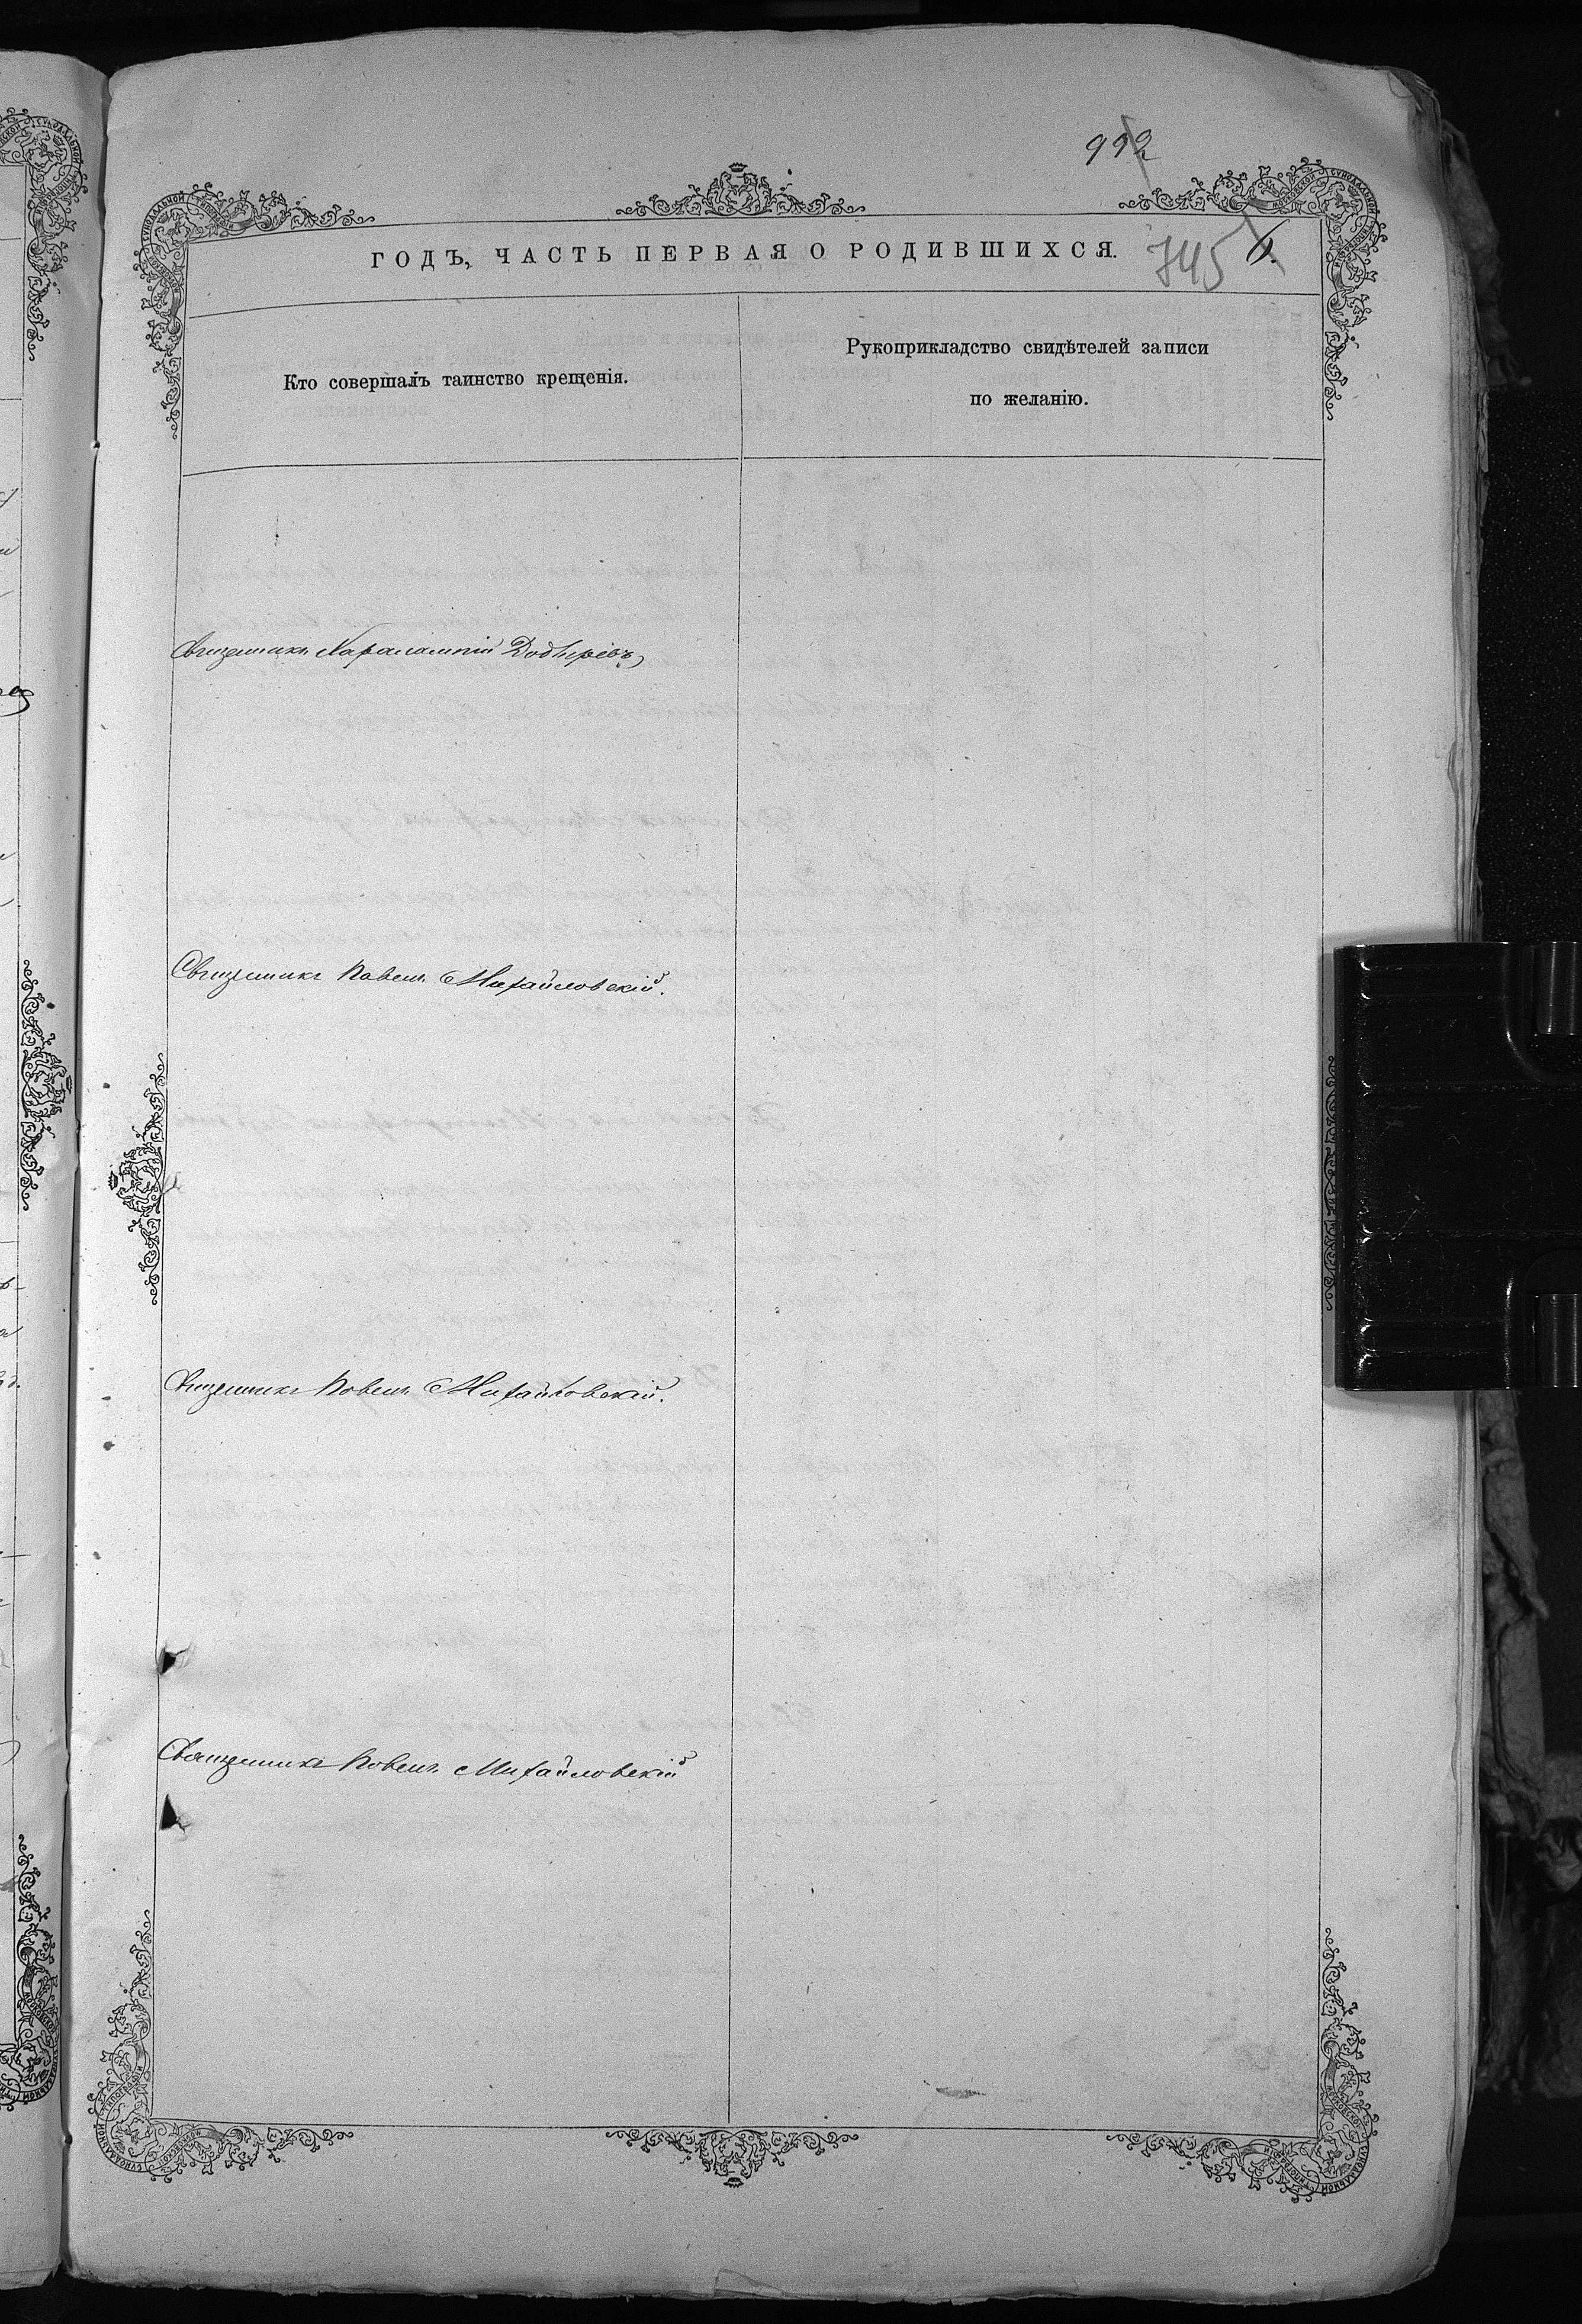 992
ГОДЪ, ЧАСТЬ ПЕРВАЯ О РОДИВШИХСЯ.
745 6.
Кто совершалъ таинство крещенія.
Рукоприкладство свидѣтелей записи
по желанію.
Священникъ Харалампій
Священникъ Павелъ Михайловскій.
Священникъ Павелъ Михайловскій.
Священникъ Павелъ Михайловскій